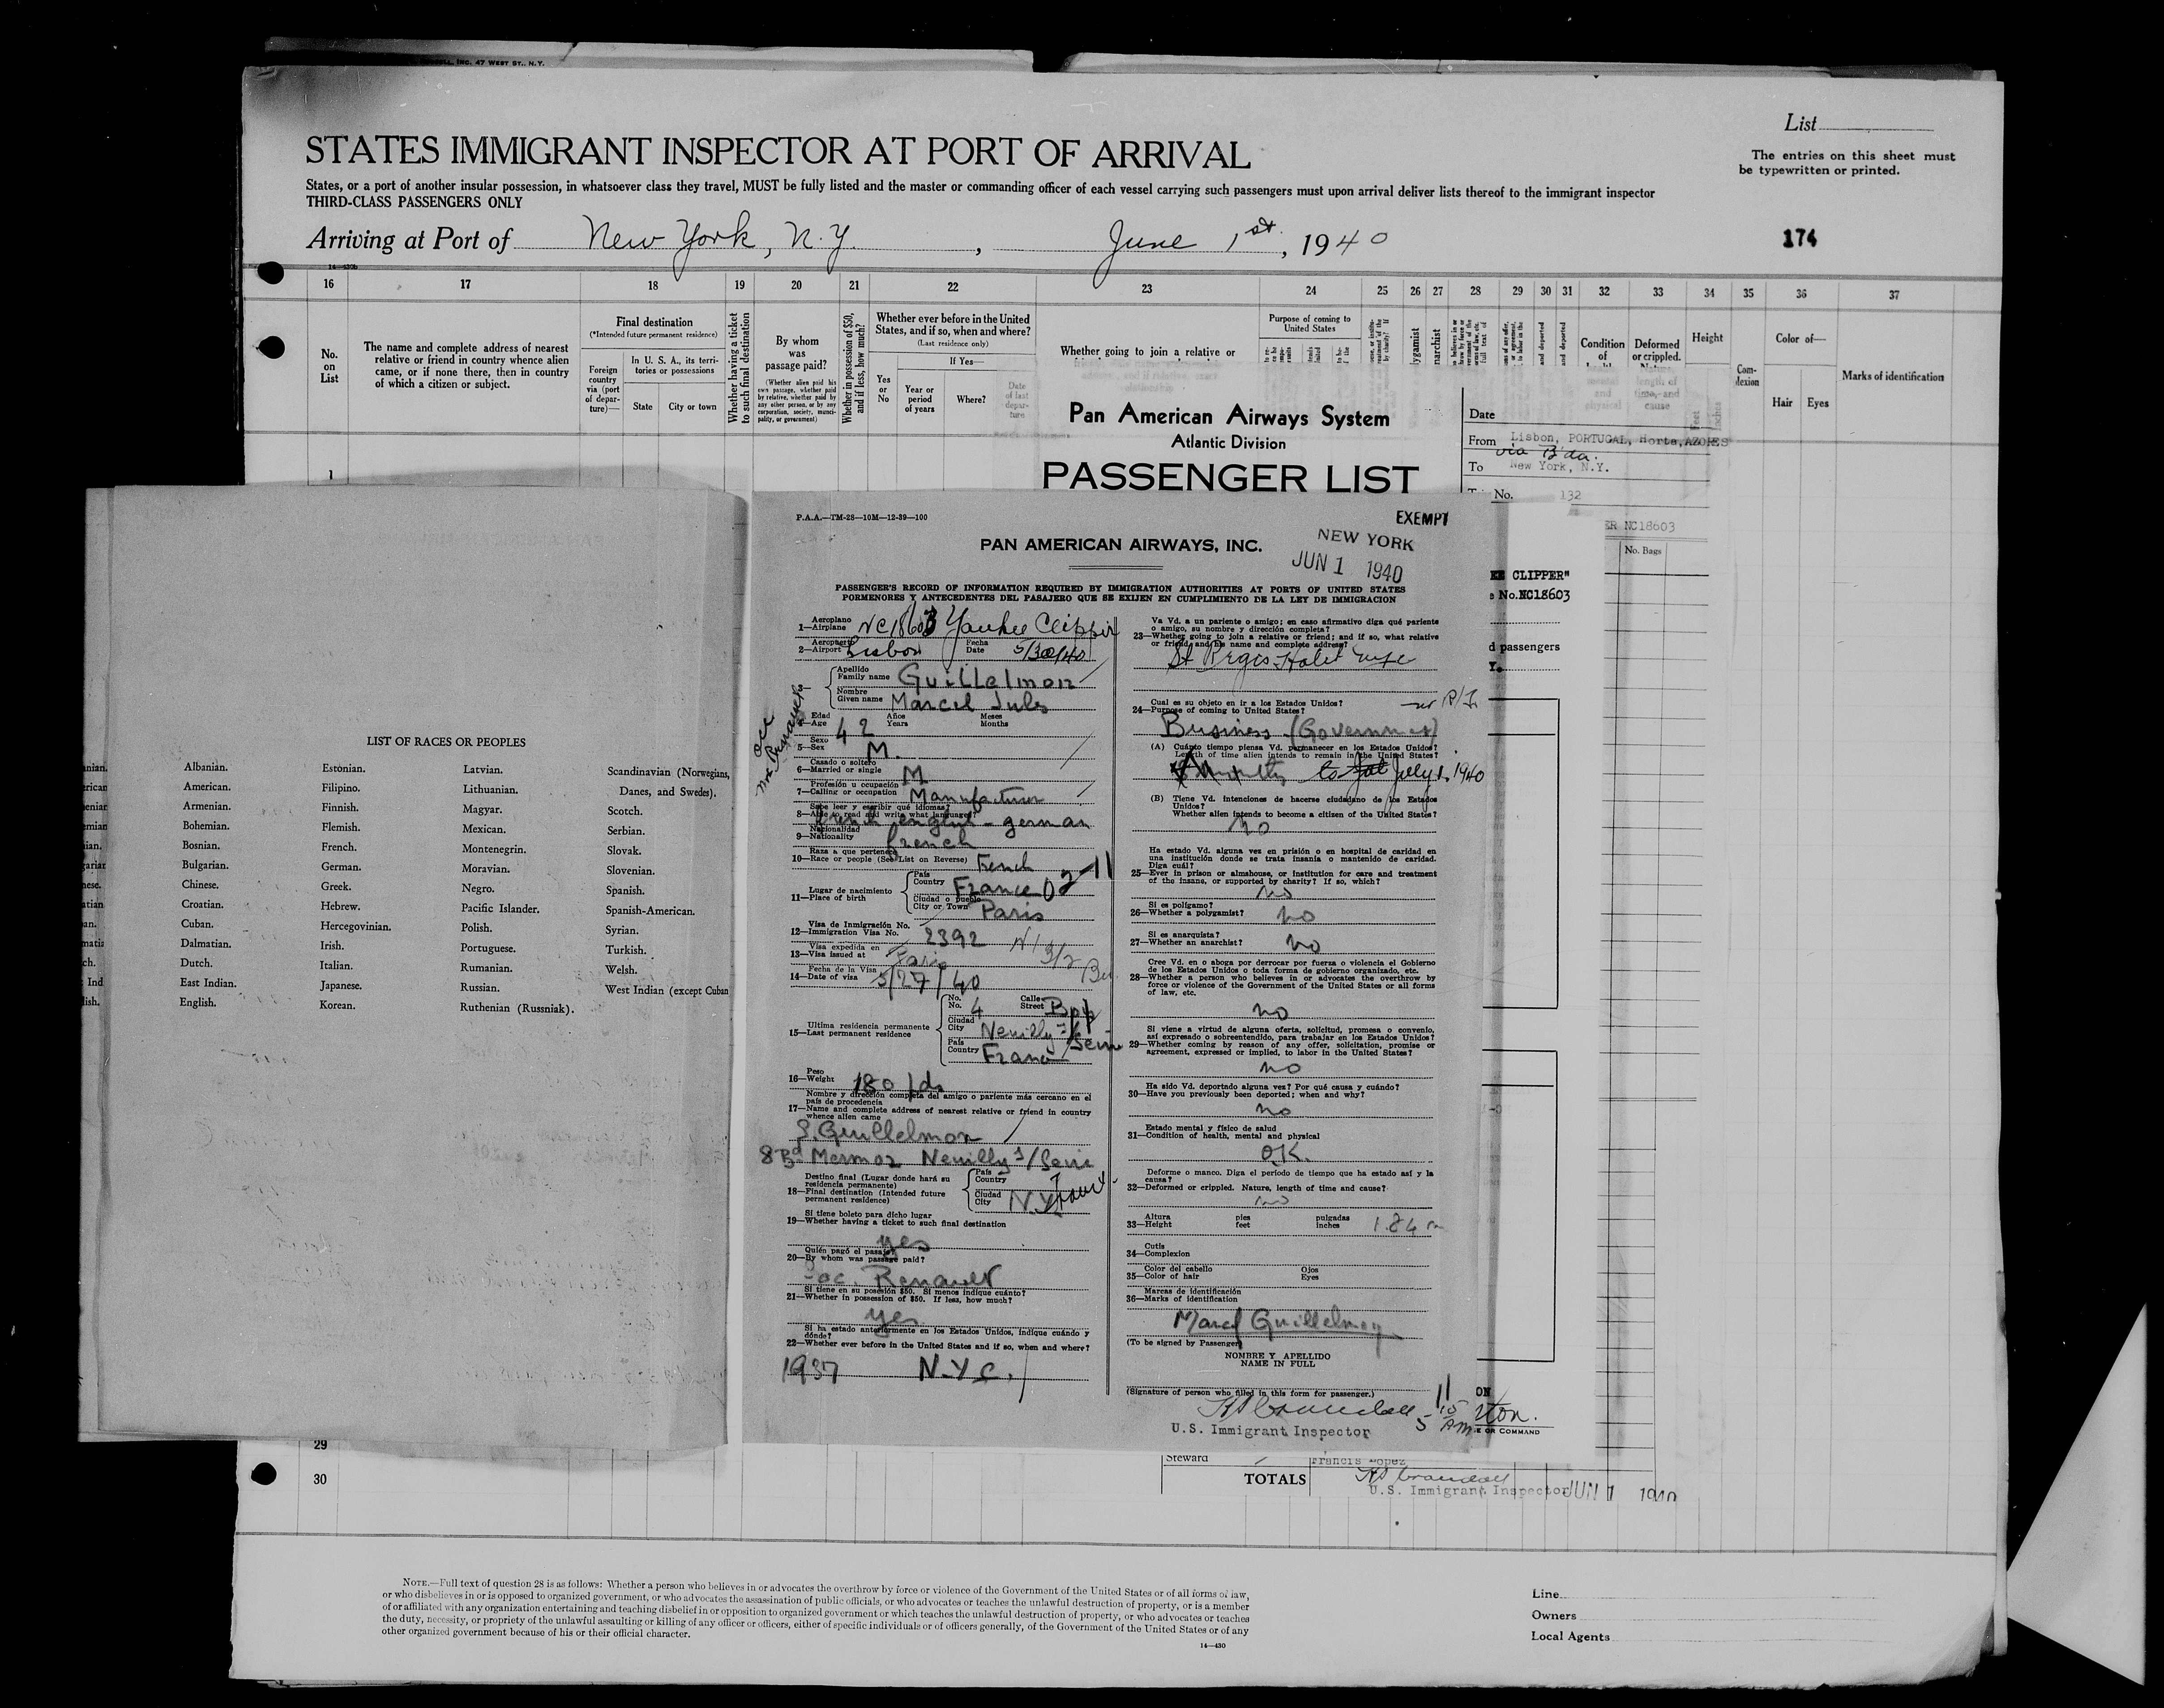 INC. 47 WEST ST., N.Y.
List
STATES IMMIGRANT INSPECTOR AT PORT OF ARRIVAL
The entries on this sheet must
be typewritten or printed.
States, or a port of another insular possession, in whatsoever class they travel, MUST be fully listed and the master or commanding officer of each vessel carrying such passengers must upon arrival deliver lists thereof to the immigrant inspector
THIRD-CLASS PASSENGERS ONLY
Arriving at Port of New York, N.Y. , June 1st. , 1940
174
16 17 18 19 20 21 22 23 24 25 26 27 28 29 30 31 32 33 34 35 36 37
No.
on
List
The name and complete address of nearest
relative or friend in country whence alien
came, or if none there, then in country
of which a citizen or subject.
Final destination
(*Intended future permanent residence)
Foreign
country
via (port
of depar-
ture)—
In U. S. A., its terri-
tories or possessions
State
City or town
Whether having a ticket
to such final destination
By whom
was
passage paid?
(Whether alien paid his
own passage, whether paid
by relative, whether paid by
any other person, or by any
corporation, society, munici-
pality, or government)
Whether in possession of $50,
and if less, how much?
Whether ever before in the United
States, and if so, when and where?
(Last residence only)
If Yes—
Yes
or
No
Year or
period
of years
Where?
Date
of last
depar-
ture
Whether going to join a relative or
Purpose of coming to
United States
Condition
of
mental
and
physical
Deformed
or crippled.
length of
time, and
cause
Height
Feet
Inches
Com-
plexion
Color of—
Hair
Eyes
Marks of identification
1
Pan American Airways System
Atlantic Division
PASSENGER LIST
Date
From Lisbon, PORTUGAL, Horta, AZORES
via B'da.
To New York, N.Y.
No. 132
ER NC18603
No. Bags
CLIPPER"
No.NC18603
d passengers
P.A.A.—TM-28—10M—12-39—100
EXEMPT
PAN AMERICAN AIRWAYS, INC.
NEW YORK
JUN 1 1940
PASSENGER'S RECORD OF INFORMATION REQUIRED BY IMMIGRATION AUTHORITIES AT PORTS OF UNITED STATES
PORMENORES Y ANTECEDENTES DEL PASAJERO QUE SE EXIJEN EN CUMPLIMIENTO DE LA LEY DE IMMIGRACION
Aeroplano
1—Airplane NC18603 Yankee Clipper
Aeropuerto Fecha
2—Airport Lisbon Date 5/30/40
Apellido
Family name Guillelmon
3—
Nombre
Given name Marcel Jules
Edad Años Meses
4—Age 42 Years Months
Sexo
5—Sex M.
Casado o soltero
6—Married or single M
Profesión u ocupación
7—Calling or occupation Manufacturer
Sabe leer y escribir qué idiomas?
8—Able to read and write what language? french english - german
Nacionalidad
9—Nationality french
Raza a que pertenece
10—Race or people (See List on Reverse) French
Lugar de nacimiento
11—Place of birth
País
Country France
Ciudad o pueblo
City or Town Paris
Visa de Inmigración No.
12—Immigration Visa No. 2392
Visa expedida en
13—Visa issued at Paris
Fecha de la Visa
14—Date of visa 5/27/40
Ultima residencia permanente
15—Last permanent residence
No. Calle
No. 4 Street Bpp
Ciudad
City Neuilly s/ Seine
País
Country France
Peso
16—Weight 180 lds
Nombre y dirección completa del amigo o pariente más cercano en el
país de procedencia
17—Name and complete address of nearest relative or friend in country
whence alien came
S. Guillelmon
8 Bd Mermoz Neuilly s/Seine
Destino final (Lugar donde hará su
residencia permanente)
18—Final destination (Intended future
permanent residence)
País
Country
Ciudad
City N.Y.
Si tiene boleto para dicho lugar
19—Whether having a ticket to such final destination
yes
Quién pagó el pasaje?
20—By whom was passage paid?
Soc. Renault
Si tiene en su posesión $50. Si menos indique cuánto?
21—Whether in possession of $50. If less, how much?
yes
Si ha estado anteriormente en los Estados Unidos, indique cuándo y
dónde?
22—Whether ever before in the United States and if so, when and where?
1937 N.Y.C.
Va Vd. a un pariente o amigo; en caso afirmativo diga qué pariente
o amigo, su nombre y dirección completa?
23—Whether going to join a relative or friend; and if so, what relative
or friend, and his name and complete address?
St Regis Hotel nyc
Cual es su objeto en ir a los Estados Unidos?
24—Purpose of coming to United States?
Business (Government)
(A) Cuánto tiempo piensa Vd. permanecer en los Estados Unidos?
Length of time alien intends to remain in the United States?
to July 1, 1940
(B) Tiene Vd. intenciones de hacerse ciudadano de los Estados
Unidos?
Whether alien intends to become a citizen of the United States?
no
Ha estado Vd. alguna vez en prisión o en hospital de caridad en
una institución donde se trata insania o mantenido de caridad.
Diga cuál?
25—Ever in prison or almshouse, or institution for care and treatment
of the insane, or supported by charity? If so, which?
no
Si es polígamo?
26—Whether a polygamist? no
Si es anarquista?
27—Whether an anarchist? no
Cree Vd. en o aboga por derrocar por fuerza o violencia el Gobierno
de los Estados Unidos o toda forma de gobierno organizado, etc.
28—Whether a person who believes in or advocates the overthrow by
force or violence of the Government of the United States or all forms
of law, etc.
no
Si viene a virtud de alguna oferta, solicitud, promesa o convenio,
así expresado o sobreentendido, para trabajar en los Estados Unidos?
29—Whether coming by reason of any offer, solicitation, promise or
agreement, expressed or implied, to labor in the United States?
no
Ha sido Vd. deportado alguna vez? Por qué causa y cuándo?
30—Have you previously been deported; when and why?
no
Estado mental y físico de salud
31—Condition of health, mental and physical
O.K.
Deforme o manco. Diga el período de tiempo que ha estado así y la
causa?
32—Deformed or crippled. Nature, length of time and cause?
no
Altura pies pulgadas
33—Height feet inches 1.84 m
Cutis
34—Complexion
Color del cabello Ojos
35—Color of hair Eyes
Marcas de identificación
36—Marks of identification
Marcel Guillelmon
(To be signed by Passenger)
NOMBRE Y APELLIDO
NAME IN FULL
(Signature of person who filled in this form for passenger.)
U.S. Immigrant Inspector
OR COMMAND
LIST OF RACES OR PEOPLES
Albanian. Estonian. Latvian. Scandinavian (Norwegians,
American. Filipino. Lithuanian. Danes, and Swedes).
Armenian. Finnish. Magyar. Scotch.
Bohemian. Flemish. Mexican. Serbian.
Bosnian. French. Montenegrin. Slovak.
Bulgarian. German. Moravian. Slovenian.
Chinese. Greek. Negro. Spanish.
Croatian. Hebrew. Pacific Islander. Spanish-American.
Cuban. Hercegovinian. Polish. Syrian.
Dalmatian. Irish. Portuguese. Turkish.
Dutch. Italian. Rumanian. Welsh.
East Indian. Japanese. Russian. West Indian (except Cuban
English. Korean. Ruthenian (Russniak).
29
30
Steward Francis Lopez
TOTALS
U.S. Immigrant Inspector JUN 1 1940
NOTE.—Full text of question 28 is as follows: Whether a person who believes in or advocates the overthrow by force or violence of the Government of the United States or of all forms of law,
or who disbelieves in or is opposed to organized government, or who advocates the assassination of public officials, or who advocates or teaches the unlawful destruction of property, or is a member
of or affiliated with any organization entertaining and teaching disbelief in or opposition to organized government or which teaches the unlawful destruction of property, or who advocates or teaches
the duty, necessity, or propriety of the unlawful assaulting or killing of any officer or officers, either of specific individuals or of officers generally, of the Government of the United States or of any
other organized government because of his or their official character.
14—430
Line
Owners
Local Agents